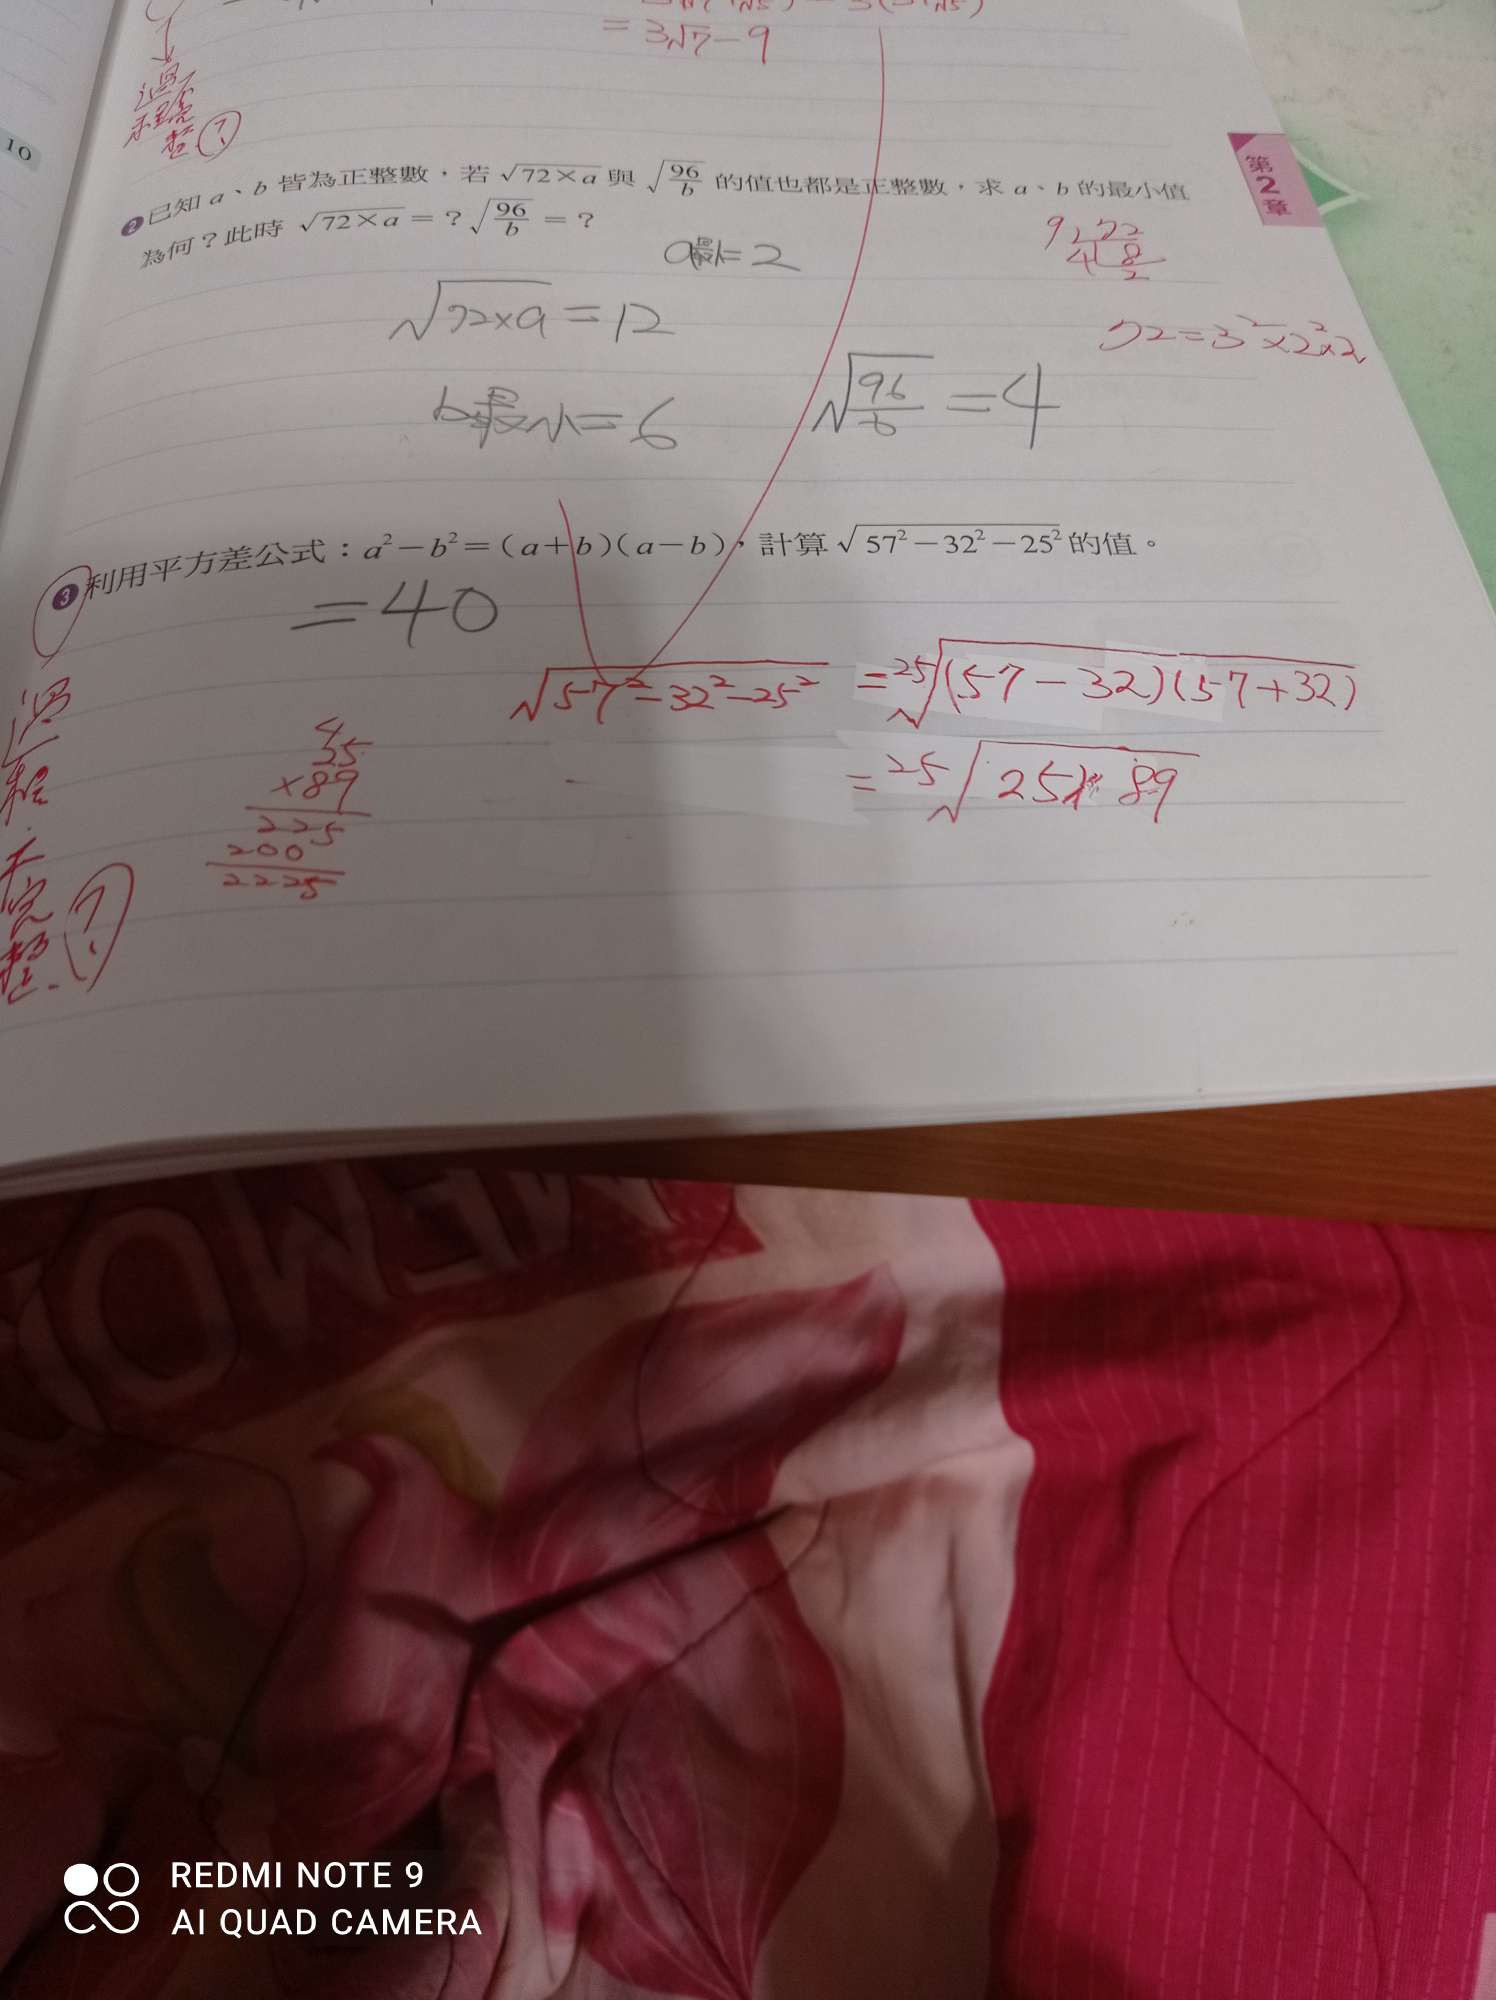 = 3√7 - 9
過
程
完
整 ?
10
第
2
章
❷ 已知 a、b 皆為正整數，若 √72×a 與 √96/b 的值也都是正整數，求 a、b 的最小值
為何？此時 √72×a = ？√96/b = ？
a最小=2
9 72
4 8
2
√72×a = 12
72=3²×2²×2
b最小=6
√96/b = 4
❸ 利用平方差公式：a²－b²=（a＋b）（a－b），計算 √57²－32²－25² 的值。
= 40
√57²-32²-25² = 25√(57-32)(57+32)
= 25√25× 89
過
程
不
完
整. ?
4
25
×89
225
200
2225
REDMI NOTE 9
AI QUAD CAMERA